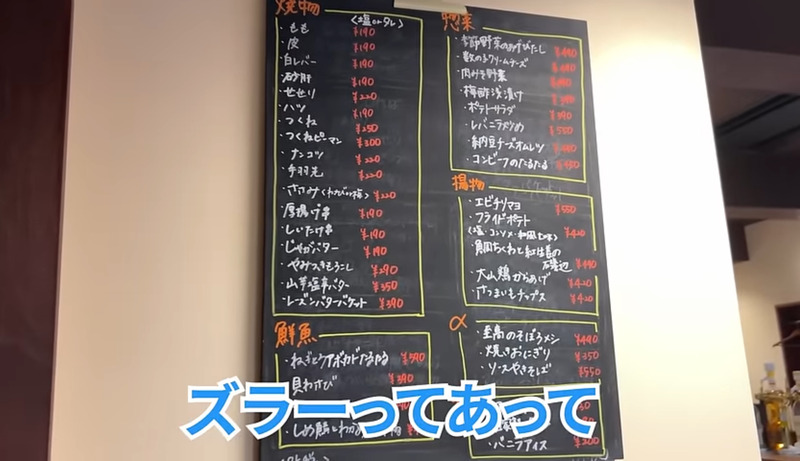 焼物 〈塩orタレ〉
・もも ¥190
・皮 ¥190
・白レバー ¥190
・砂肝 ¥190
・せせり ¥220
・ハツ ¥190
・つくね ¥250
・つくねピーマン ¥300
・ナンコツ ¥220
・手羽先 ¥220
・ささみ〈わさびor梅〉 ¥220
・厚揚げ串 ¥190
・しいたけ串 ¥190
・じゃがバター ¥190
・やみつきもろこし ¥290
・山芋塩辛バター ¥350
・レーズンバターバケット ¥390
鮮魚
・ねぎとアボカドたるたる ¥590
・貝わさび ¥390
惣菜
・季節野菜のあげびたし ¥490
・数の子クリームチーズ
・肉みそ野菜
・梅酢浅漬け
・ポテトサラダ ¥390
・レバニララメツめ ¥550
・納豆チーズオムレツ
・コンビーフのたるたる
揚物
・エビチリマヨ ¥550
・フライドポテト
〈塩・コンソメ・和風 ¥420
・鯛ちくわと紅生姜の
磯辺 ¥490
・大山鶏からあげ ¥420
・さつまいもチップス ¥420
α
・至高のそぼろメシ ¥490
・焼きおにぎり ¥350
・ソースやきそば ¥550
・バニラアイス ¥200
ズラーってあって